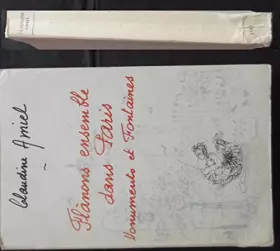 Claudine Amiel
~
Flânons ensemble
dans Paris
Monuments et Fontaines